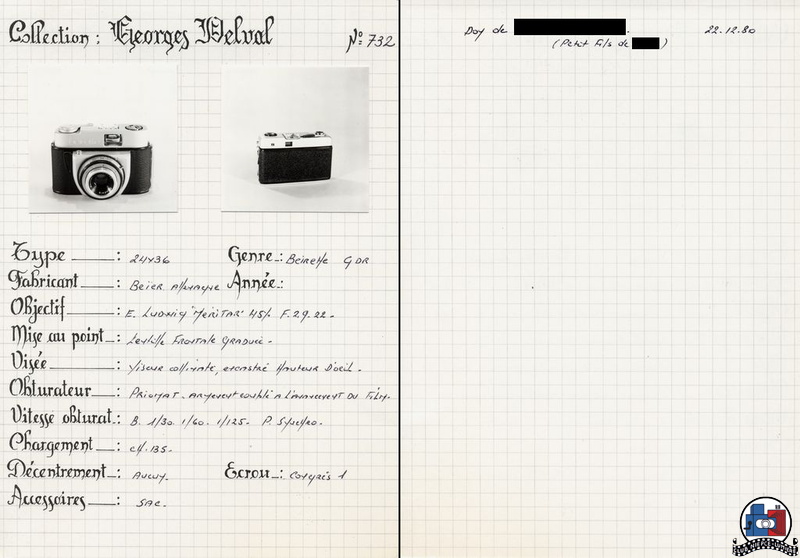 Collection : Georges Delval Nº 732
Type : 24x36 Genre : Beirette GDR
Fabricant : Beier Allemagne Année :
Objectif : E. Ludwig "Meritar" 45/ F. 2.9. 22 -
Mise au point : Lentille Frontale Graduée -
Visée : Viseur collimaté, encastré Hauteur D'oeil -
Obturateur : Priomat - Armement couplé a L'avancement Du Film -
Vitesse obturat. : B. 1/30. 1/60. 1/125 - P. Synchro -
Chargement : ch. 135 -
Décentrement : Aucun - Ecrou : Congrès 1
Accessoires : Sac -
Don de 22.12.80
(Petit Fils de )